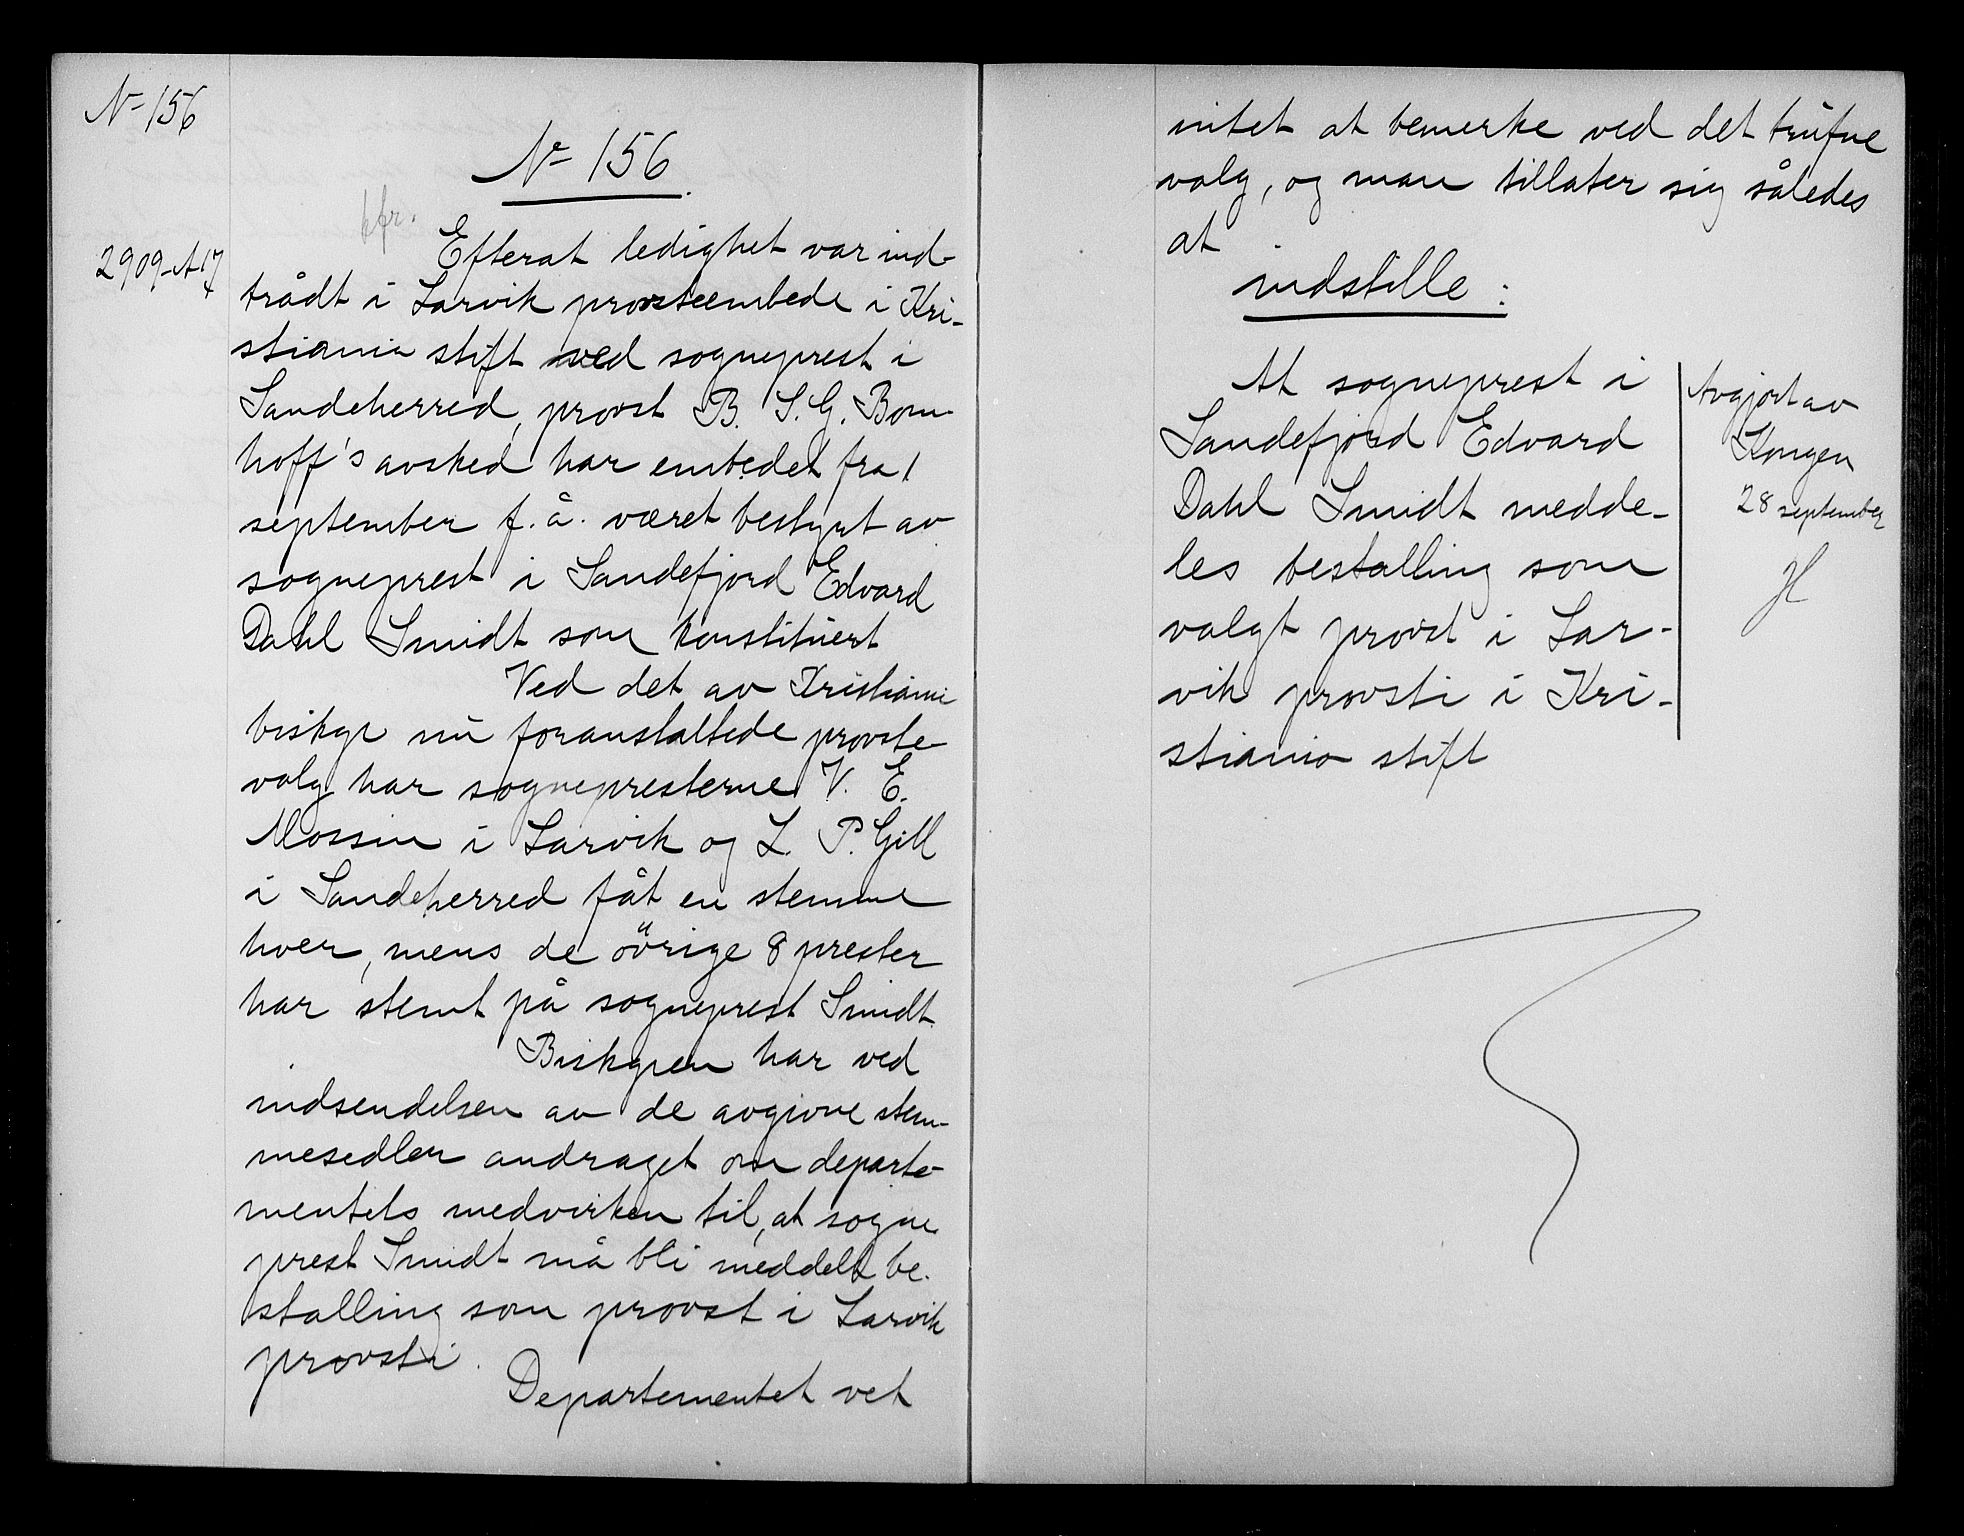 No 156
No 156
kfr.
2909-A17
Efterat ledighet var ind-
trådt i Larvik prosteembede i Kri-
stiania stift ved sogneprest i
Sandeherred, provst B. S. G. Bom-
hoff's avsked har embedet fra 1
september f. å. været bestyrt av
sogneprest i Sandefjord Edvard
Dahl Smidt som konstituert
Ved det av Kristiania
biskop nu foranstaltede provste-
valg har sognepresterne V. E.
Mossin i Larvik og L. P. Gill
i Sandeherred fåt en stemme
hver, mens de övrige 8 prester
har stemt på sogneprest Smidt.
Biskopen har ved
indsendelsen av de avgivne stem-
mesedler andraget om departe-
mentets medvirken til, at sogne
prest Smidt må bli meddelt be-
stalling som provst i Larvik
provsti.
Departementet vet
intet at bemerke ved det trufne
valg, og man tillater sig således
at
indstille:
At sogneprest i
Sandefjord Edvard
Dahl Smidt medde-
les bestalling som
valgt provst i Lar-
vik provsti i Kri-
stiania stift
Avgjort av
Kongen
28 september
H